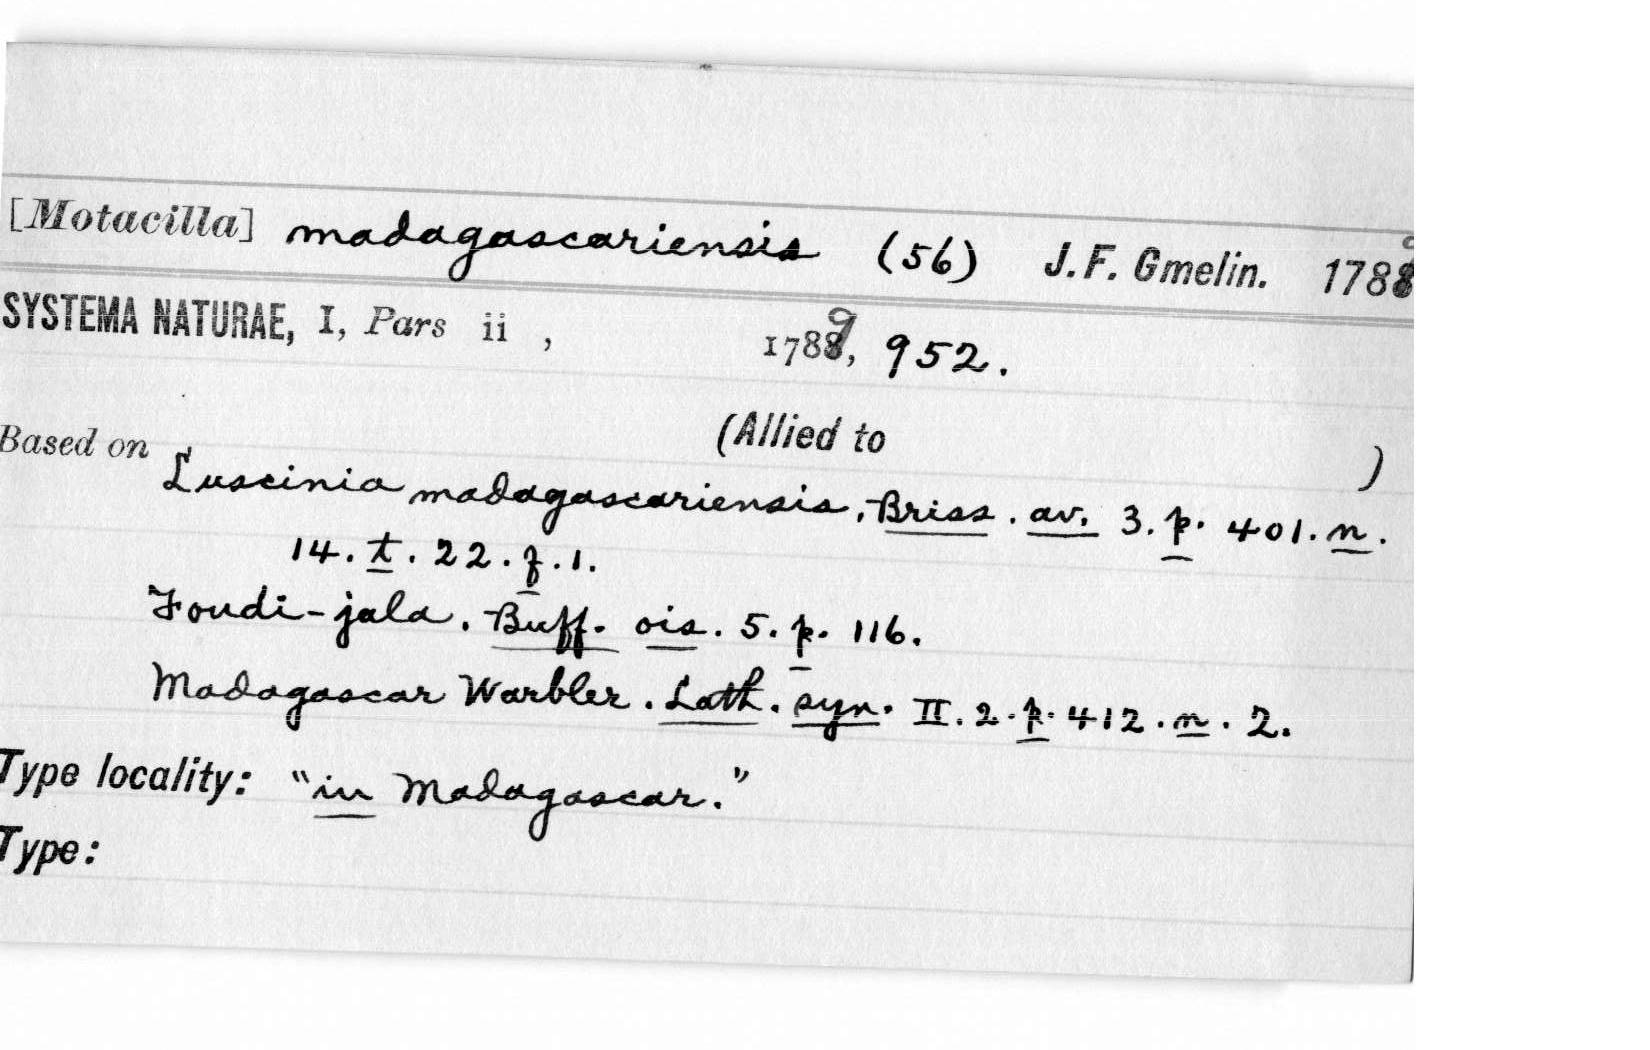 [Motacilla] madagascariensis (56) J.F. Gmelin. 1789
SYSTEMA NATURAE, I, Pars ii , 1789, 952.
(Allied to )
Based on Luscinia madagascariensis. Briss. av. 3. p. 401. n.
14. t. 22. f. 1.
Foudi-jala. Buff. ois. 5. p. 116.
Madagascar Warbler. Lath. syn. II. 2. p. 412. n. 2.
Type locality: "in Madagascar."
Type: